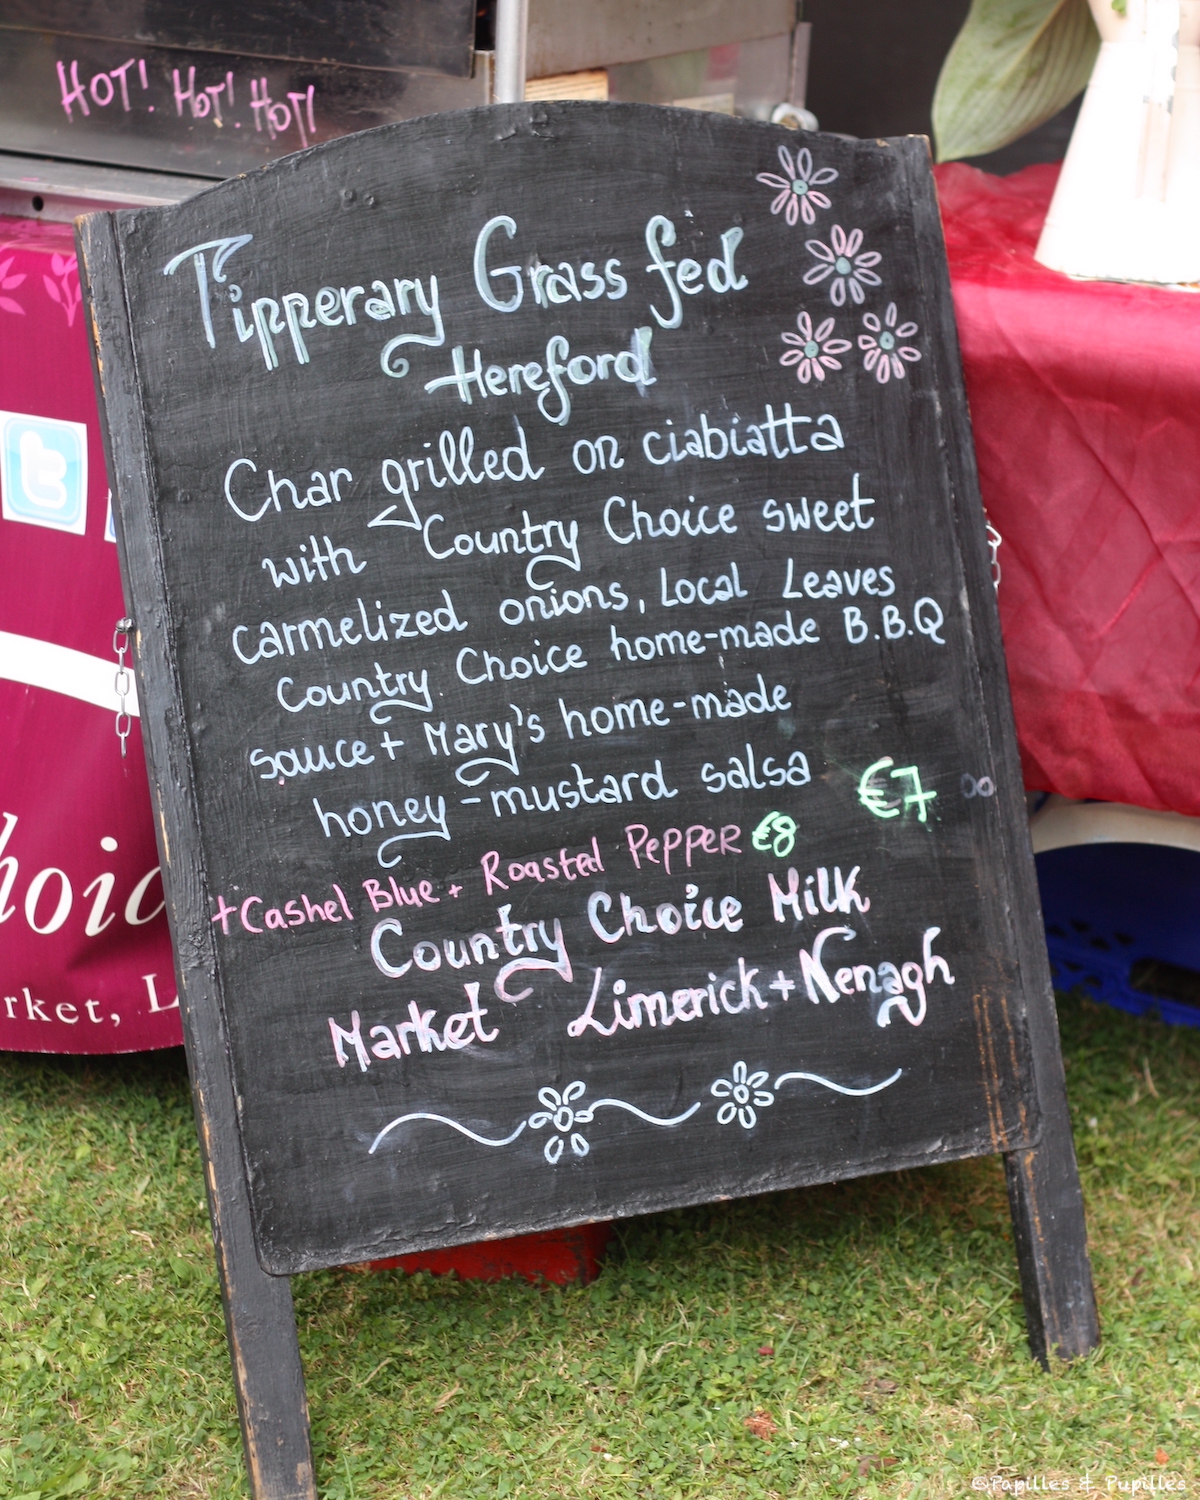 HOT! HOT! HOT!
Tipperary Grass fed
Hereford
Char grilled on ciabiatta
with Country Choice sweet
carmelized onions, Local Leaves
Country Choice home-made B.B.Q
sauce + Mary's home-made
honey-mustard salsa €7
+ Cashel Blue + Roasted Pepper €8
Country Choice Milk
Market Limerick + Nenagh
hoic
rket, L
©Papilles & Pupilles